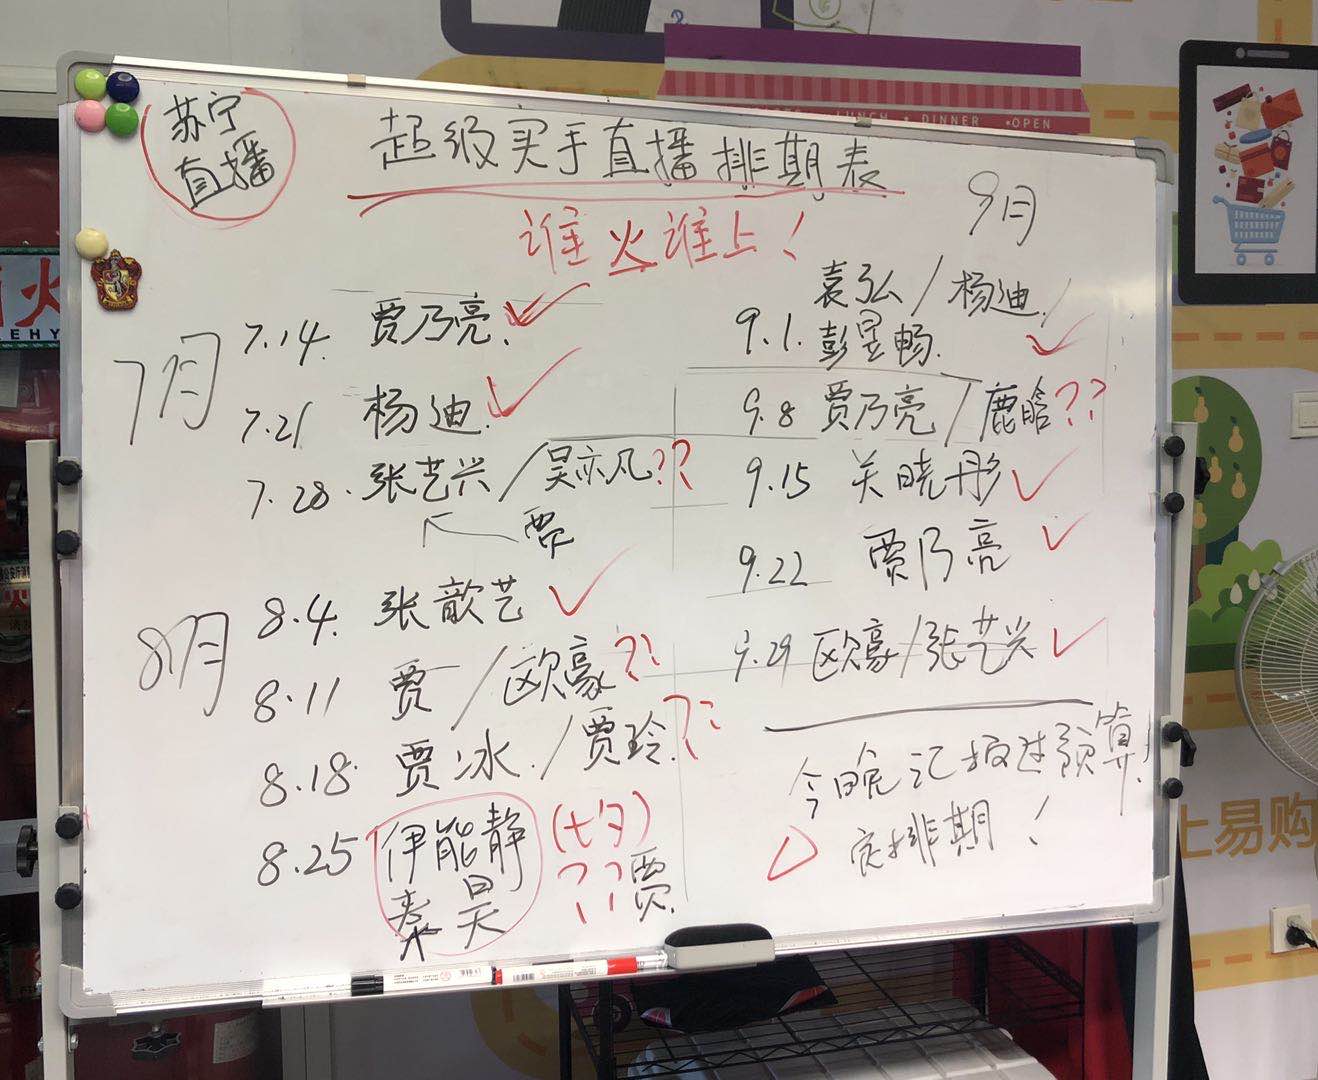 苏宁
直播
超级买手直播排期表
谁火谁上！
7月
7.14. 贾乃亮.
7.21 杨迪.
7.28. 张艺兴/吴亦凡??
贾
8月
8.4. 张歆艺
8.11 贾/欧豪??
8.18. 贾冰./贾玲??
8.25 伊能静 (七夕)
秦昊 ??贾.
9月
袁弘/杨迪/
9.1. 彭昱畅.
9.8 贾乃亮/鹿晗??
9.15 关晓彤
9.22 贾乃亮
9.29 欧豪/张艺兴
今晚汇报过预算!
定排期!
LUNCH • DINNER •OPEN
火
EHY
上易购